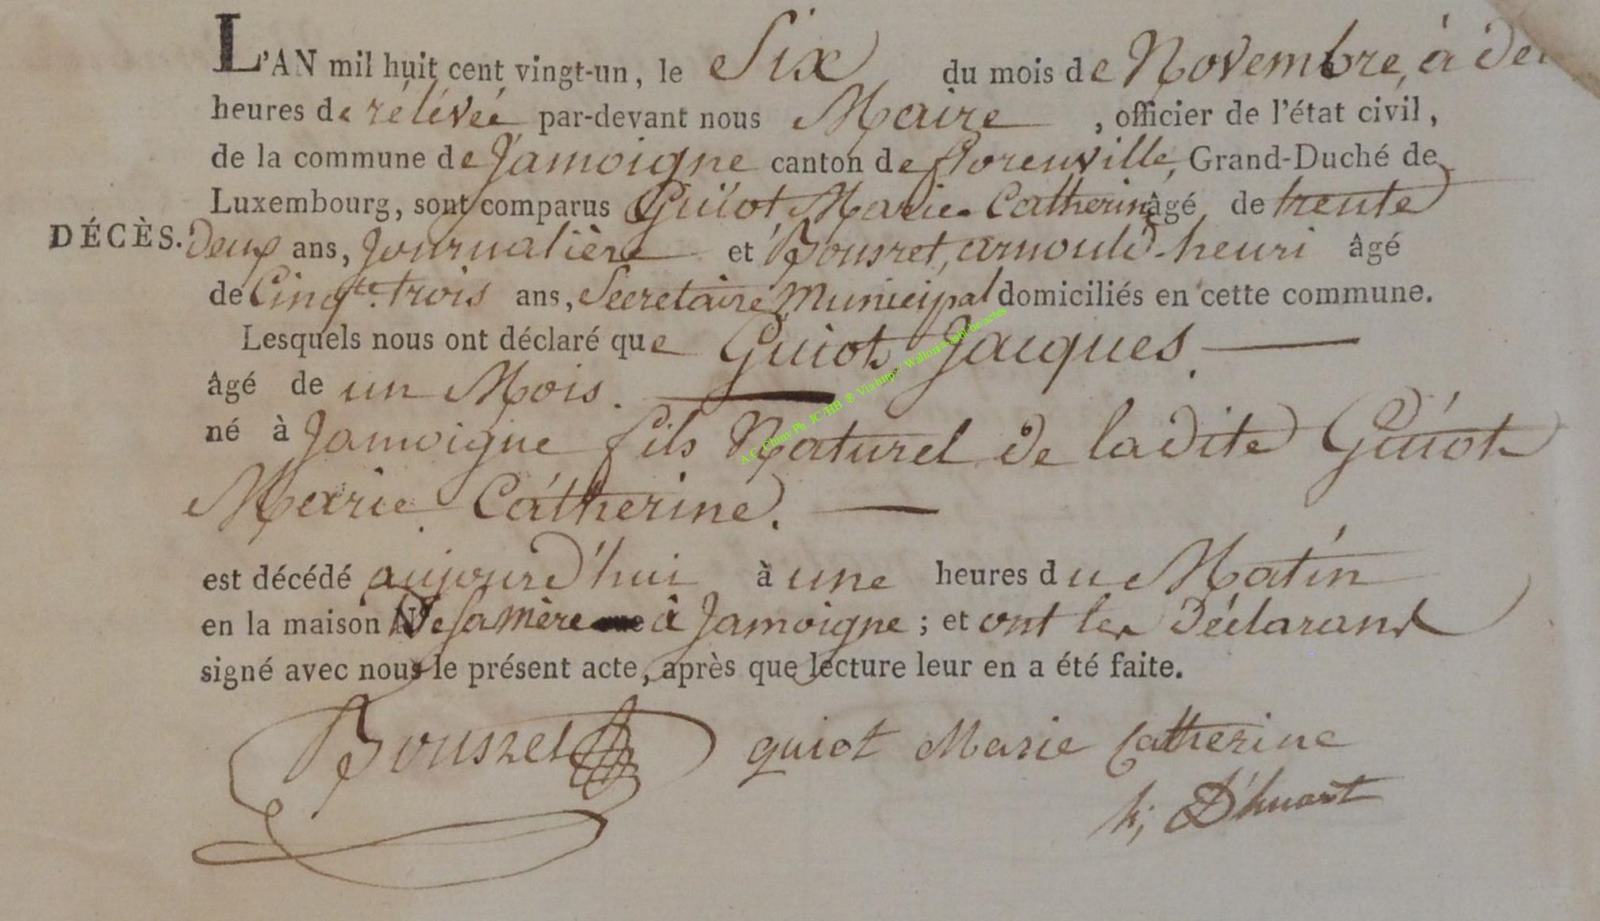 L'AN mil huit cent vingt-un, le Six du mois de Novembre, à
heures de rélévée par-devant nous Maire, officier de l'état civil,
de la commune de Jamoigne canton de florenville, Grand-Duché de
Luxembourg, sont comparus Guïot Marie Catherine âgé de trente
DÉCÈS. Deux ans, Journalière et Bousret, arnould-henri âgé
de Cinqte. trois ans, Secretaire Municipal domiciliés en cette commune.
Lesquels nous ont déclaré que Guiot Jacques.
âgé de un Mois.
né à Jamoigne fils Naturel de ladite Guiot
Marie Catherine.
est décédé aujourd'hui à une heures du Matin
en la maison De sa mère à Jamoigne ; et ont les Déclarans
signé avec nous le présent acte, après que lecture leur en a été faite.
Bousret guiot Marie Catherine
h; D'huart